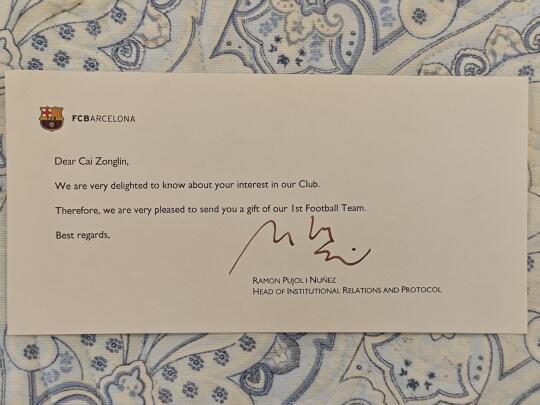 FCBARCELONA
Dear Cai Zonglin,
We are very delighted to know about your interest in our Club.
Therefore, we are very pleased to send you a gift of our 1st Football Team.
Best regards,
RAMON PUJOL I NUÑEZ
HEAD OF INSTITUTIONAL RELATIONS AND PROTOCOL